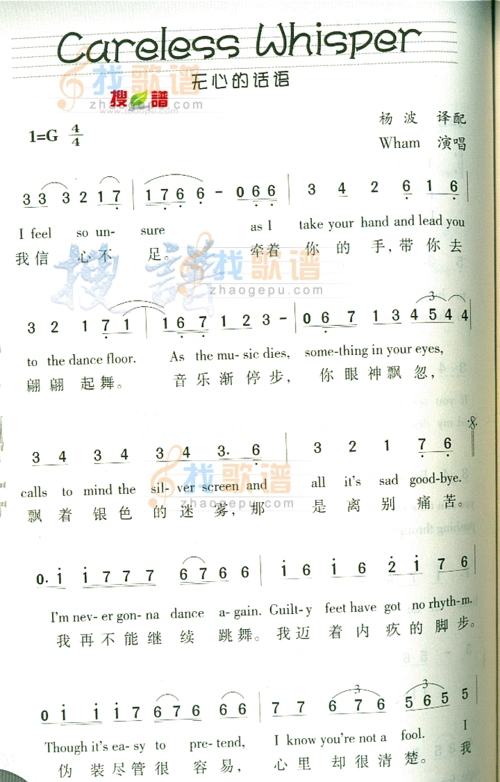 Careless Whisper
无心的话语
找歌谱
搜 譜
zhaogepu.com
杨 波 译配
1=G 4/4
Wham 演唱
3 3 3 2 1 7 | 1 7 6 6 - 0 6 6 | 3 4 2 6 1 6
I feel so un- sure as I take your hand and lead you
我信 心不 足。 牵着 你 的 手,带 你 去
搜譜
找歌谱
zhaogepu.com
3 2 1 7 1 | 1 6 7 1 2 3 - | 0 1 1 7 1 3 4 5 4 4
to the dance floor. As the mu- sic dies, some-thing in your eyes,
翩 翩 起 舞。 音 乐 渐 停 步, 你 眼 神 飘 忽,
3 4 3 4 3 4 3. 6 | 3 2 1 7 6
找歌谱
zhaogepu.com
calls to mind the sil- ver screen and all it's sad good-bye.
飘 着 银 色 的 迷 雾,那 是 离 别 痛 苦。
0. i i 7 7 7 6 7 6 6 | i i i 6 2 i 7 6
I'm nev- er gon- na dance a- gain. Guilt- y feet have got no rhyth- m.
我 再 不 能 继 续 跳 舞。我 迈 着 内 疚 的 脚 步。
0 i i i 7 7 6 7 6 6 | 7 7 6 7 6 5 6 5 5
Though it's ea- sy to pre- tend, I know you're not a fool. I
伪 装 尽 管 很 容 易, 心 里 却 很 清 楚。 我